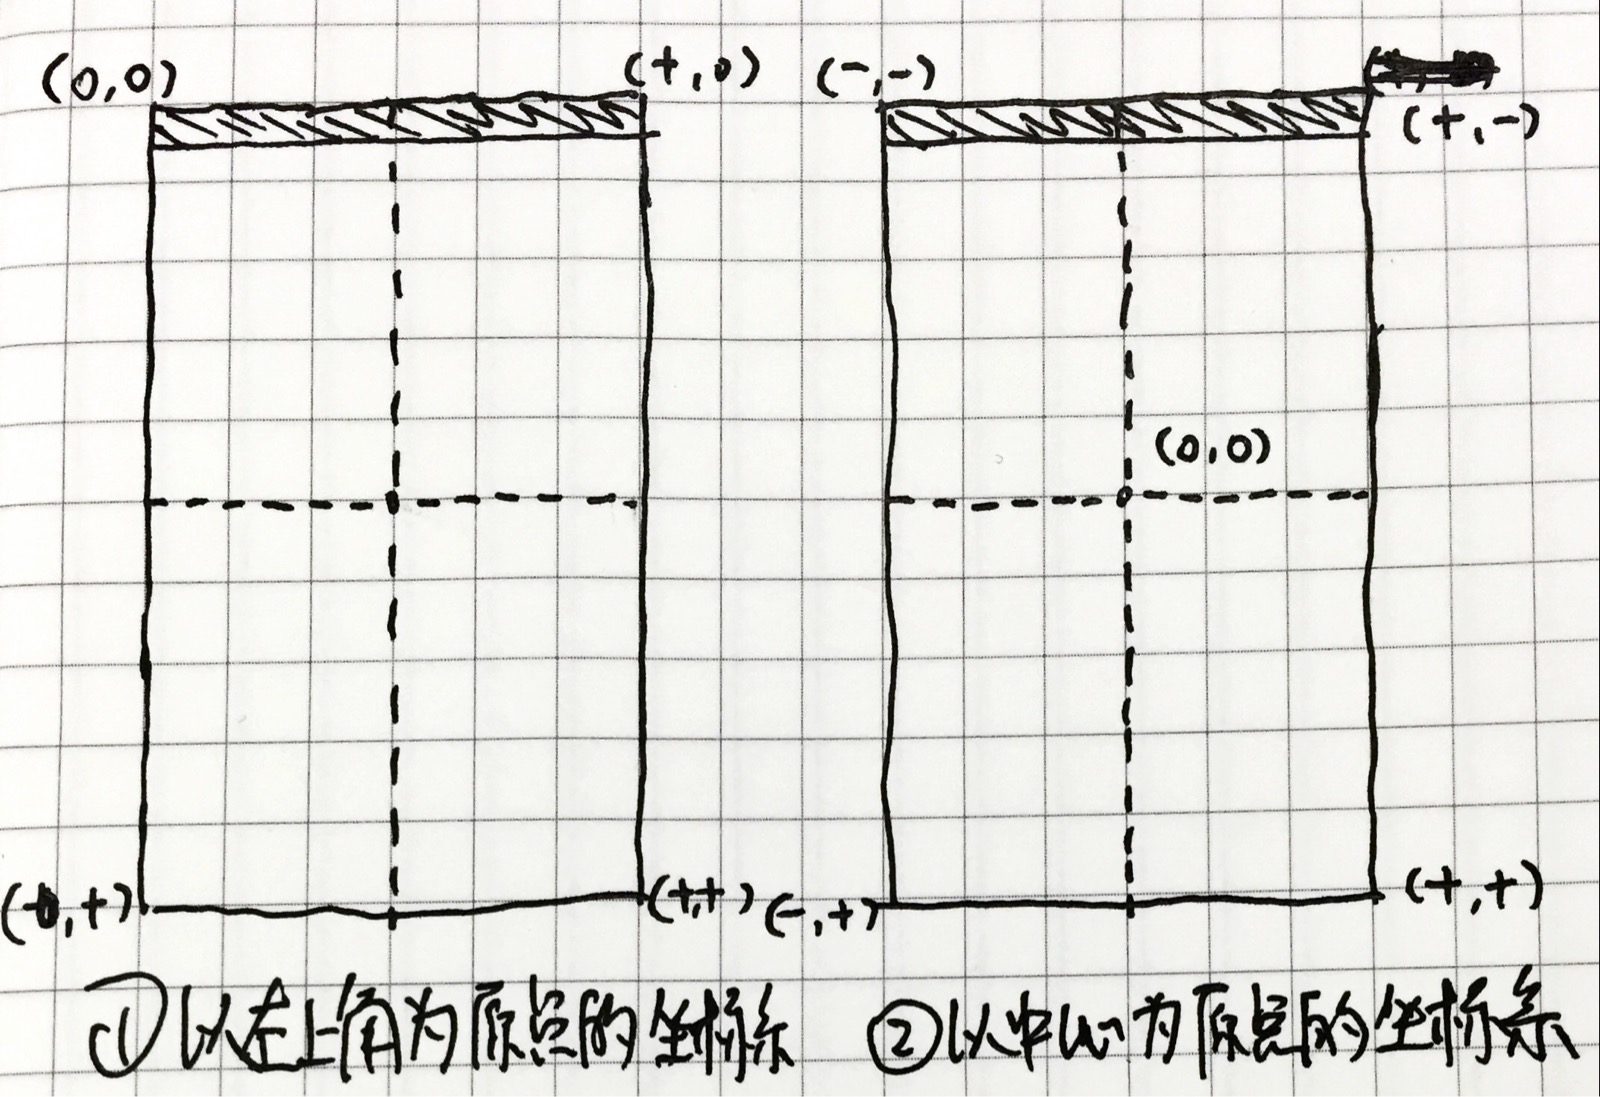 (0,0) (+,0)
(0,+) (+,+)
①以左上角为原点的坐标系
(-,-) (+,-)
(0,0)
(-,+) (+,+)
②以中心为原点的坐标系